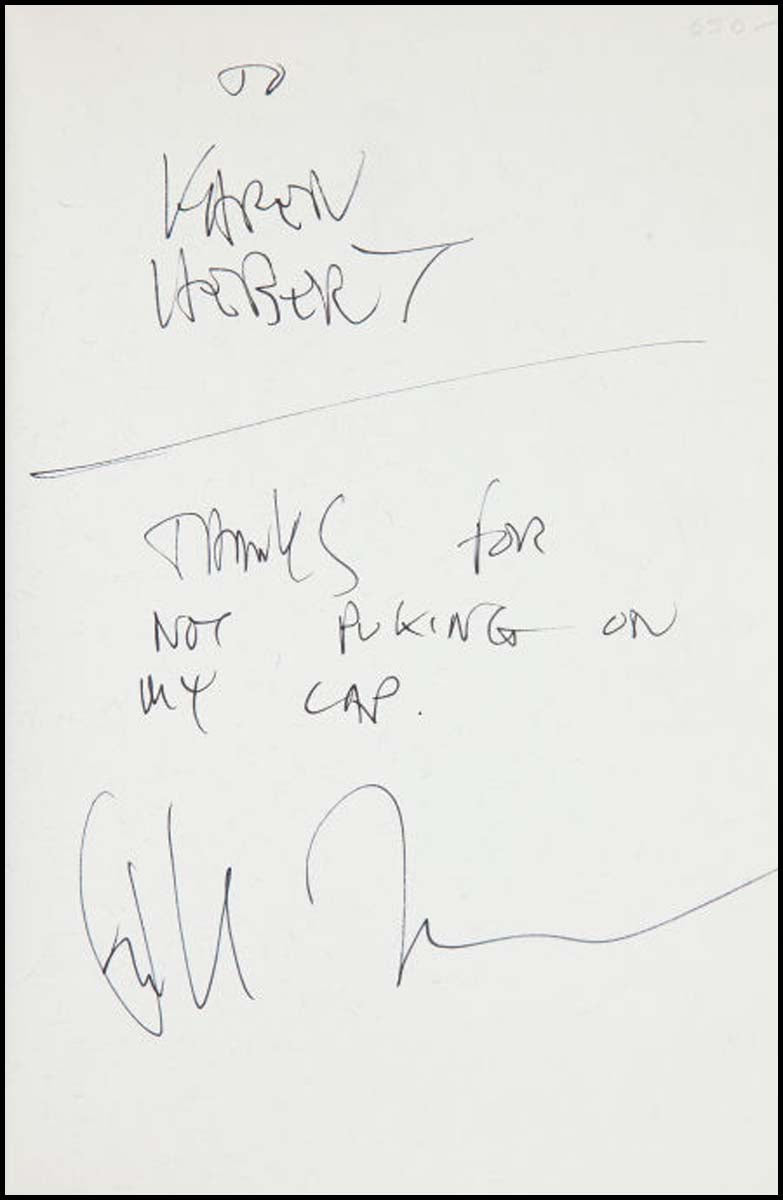 TO
KAREN
HEBERT
THANKS FOR
NOT PUKING ON
MY LAP.